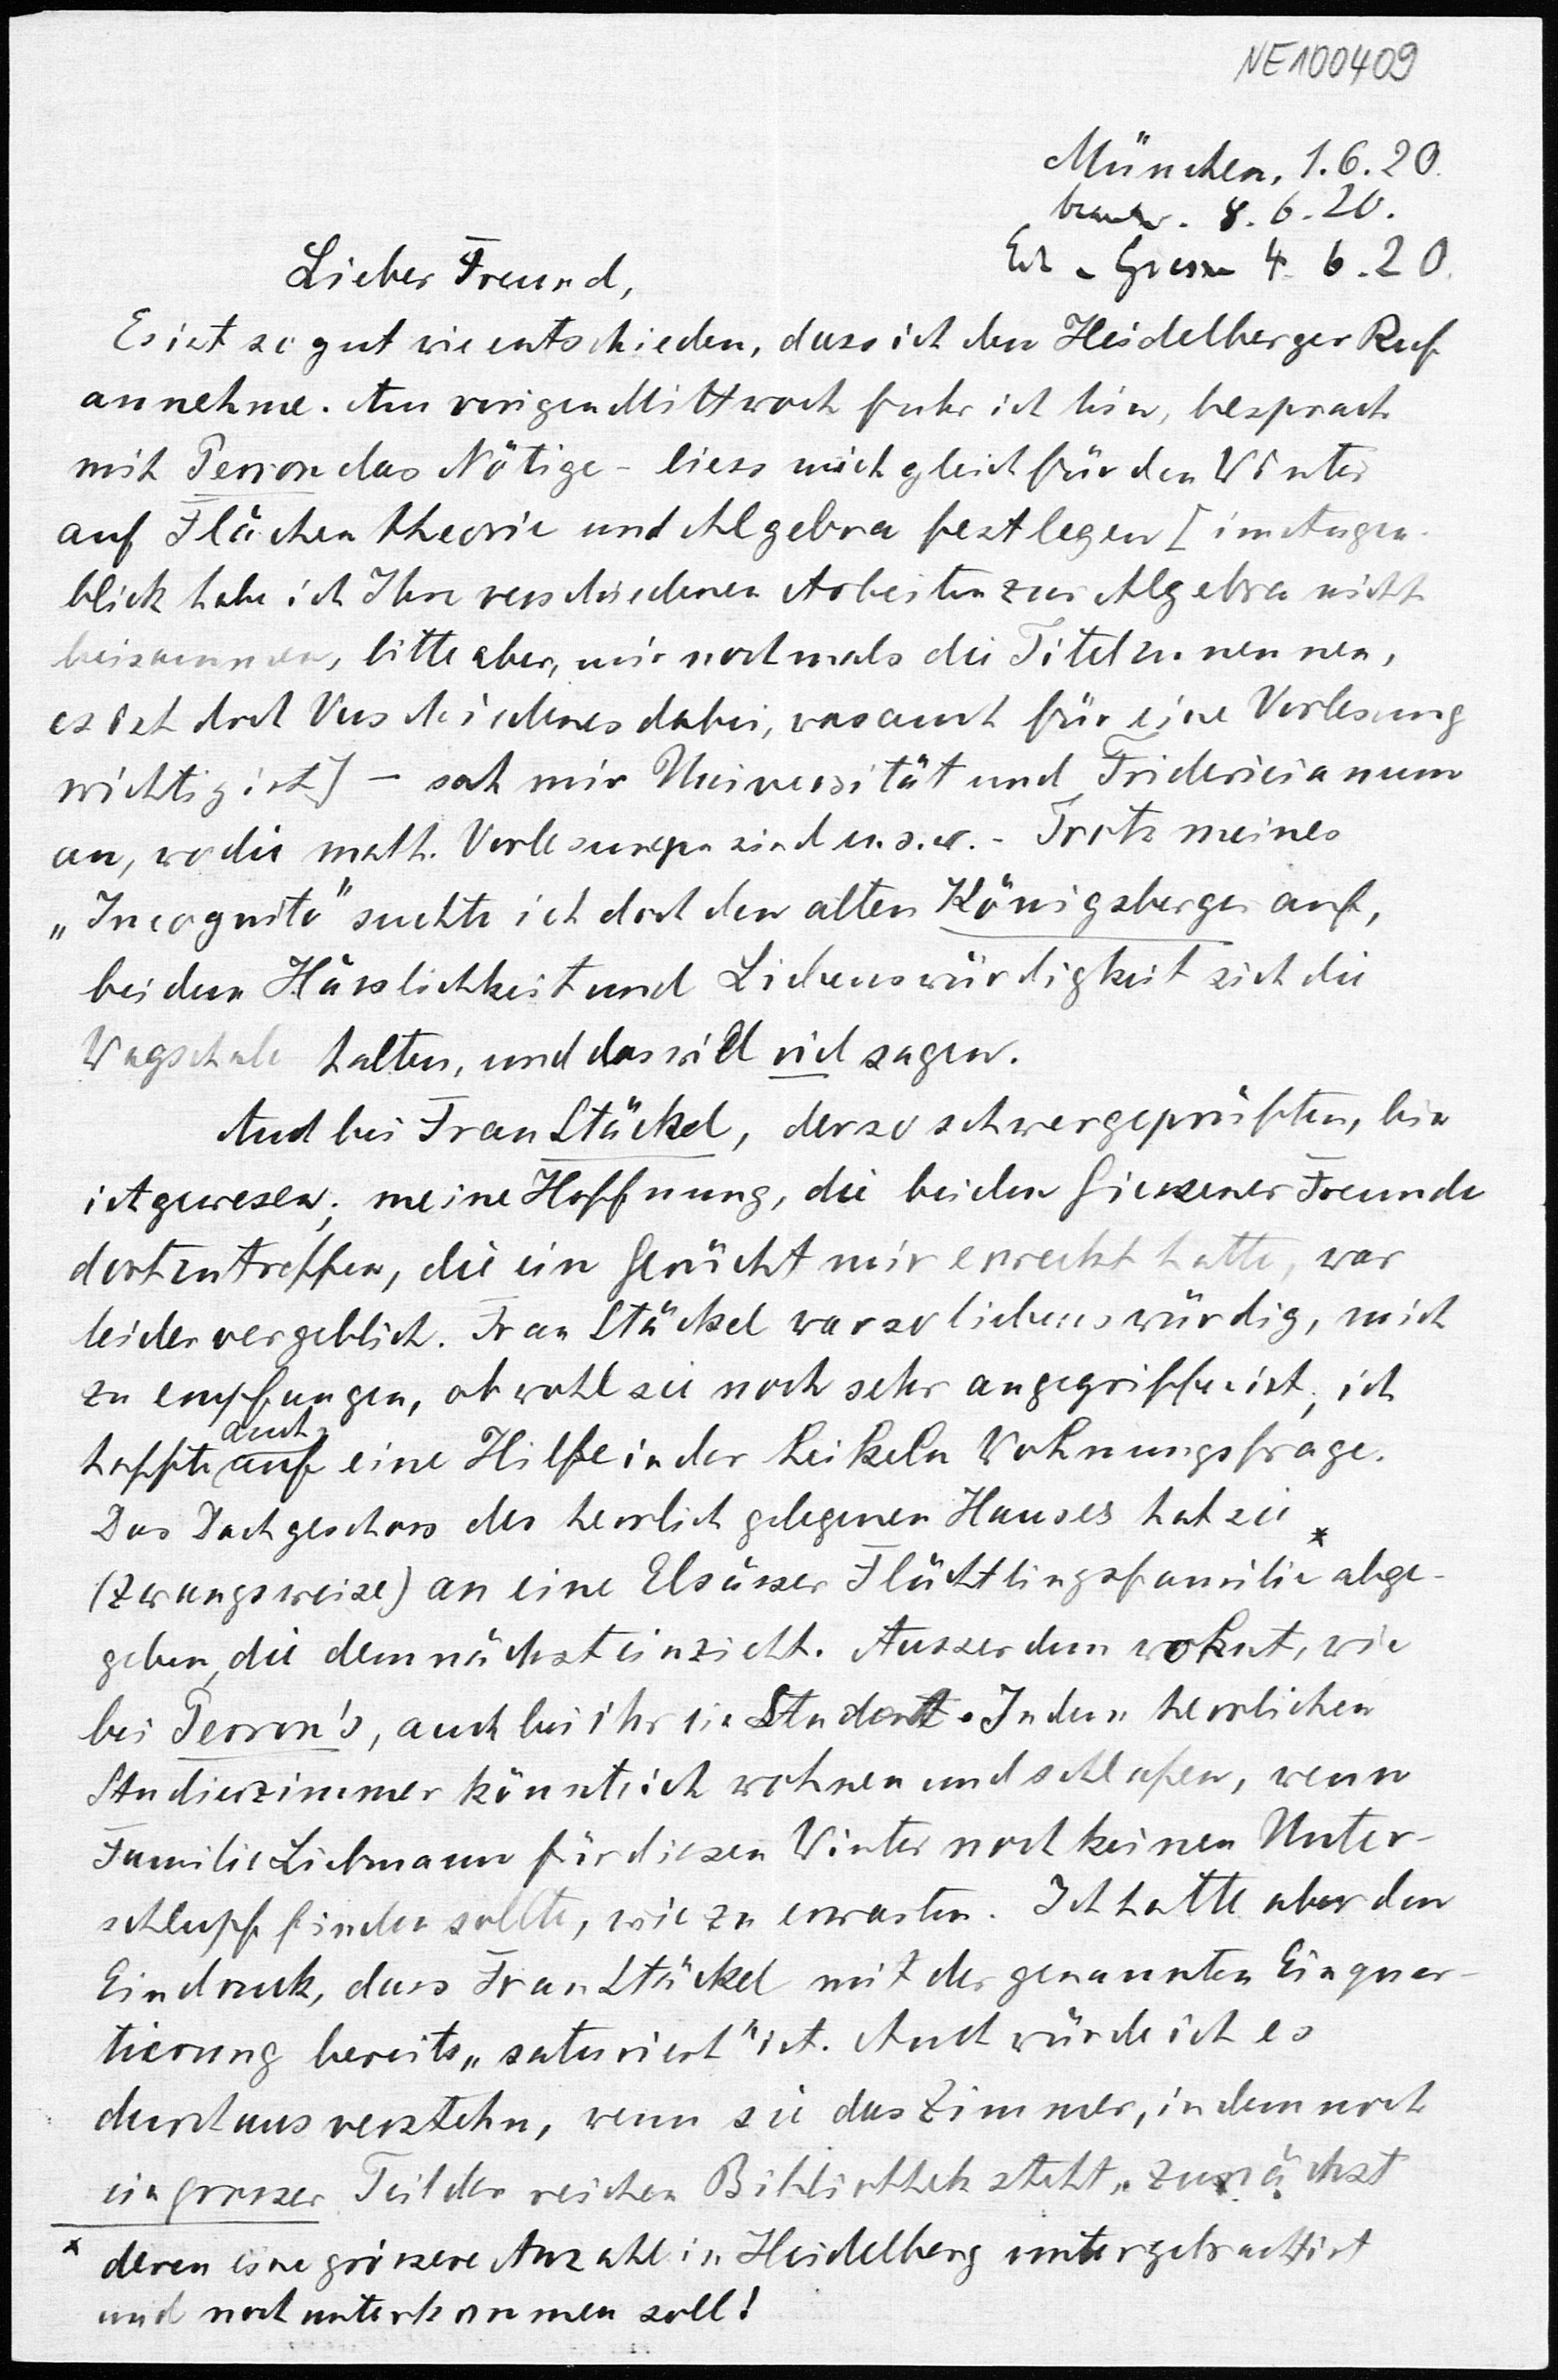 NE100409
München, 1.6.20.
beantw. 8.6.20.
Erh. Giessen 4.6.20.
Lieber Freund,
Es ist so gut wie entschieden, dass ich den Heidelberger Ruf
annehme. Am vorigen Mittwoch fuhr ich hin, besprach
mit Perron das Nötige - liess mich gleich für den Winter
auf Flächentheorie und Algebra festlegen [im Augen-
blick habe ich Ihre verschiedenen Arbeiten zur Algebra nicht
beisammen, bitte aber, mir nochmals die Titel zu nennen,
es ist doch Verschiedenes dabei, was auch für eine Vorlesung
wichtig ist] - sah mir Universität und Fridericianum
an, wo die math. Vorlesungen sind u.s.w. - Trotz meines
„Incognito" suchte ich doch den alten Königsberger auf,
bei dem Hässlichkeit und Liebenswürdigkeit sich die
Wagschale halten, und das will viel sagen.
Auch bei Frau Stäckel, der so schwergeprüften, bin
ich gewesen; meine Hoffnung, die beiden Giessener Freunde
dort zu treffen, die ein Gerücht mir erweckt hatte, war
leider vergeblich. Frau Stäckel war so liebenswürdig, mich
zu empfangen, obwohl sie noch sehr angegriffen ist; ich
hoffte auch auf eine Hilfe in der heikeln Wohnungsfrage.
Das Dachgeschoss des herrlich gelegenen Hauses hat sie
(zwangsweise) an eine Elsässer Flüchtlingsfamilie* abge-
geben, die demnächst einzieht. Ausserdem wohnt, wie
bei Perron's, auch bei ihr ein Student. In dem herrlichen
Studierzimmer könnte ich wohnen und schlafen, wenn
Familie Liebmann für diesen Winter noch keinen Unter-
schlupf finden sollte, wie zu erwarten. Ich hatte aber den
Eindruck, dass Frau Stäckel mit der genannten Einquar-
tierung bereits „saturiert" ist. Auch würde ich es
durchaus verstehn, wenn sie das Zimmer, in dem noch
ein grosser Teil der reichen Bibliothek steht, zunächst
* deren eine grössere Anzahl in Heidelberg untergebracht ist
und noch unterkommen soll!